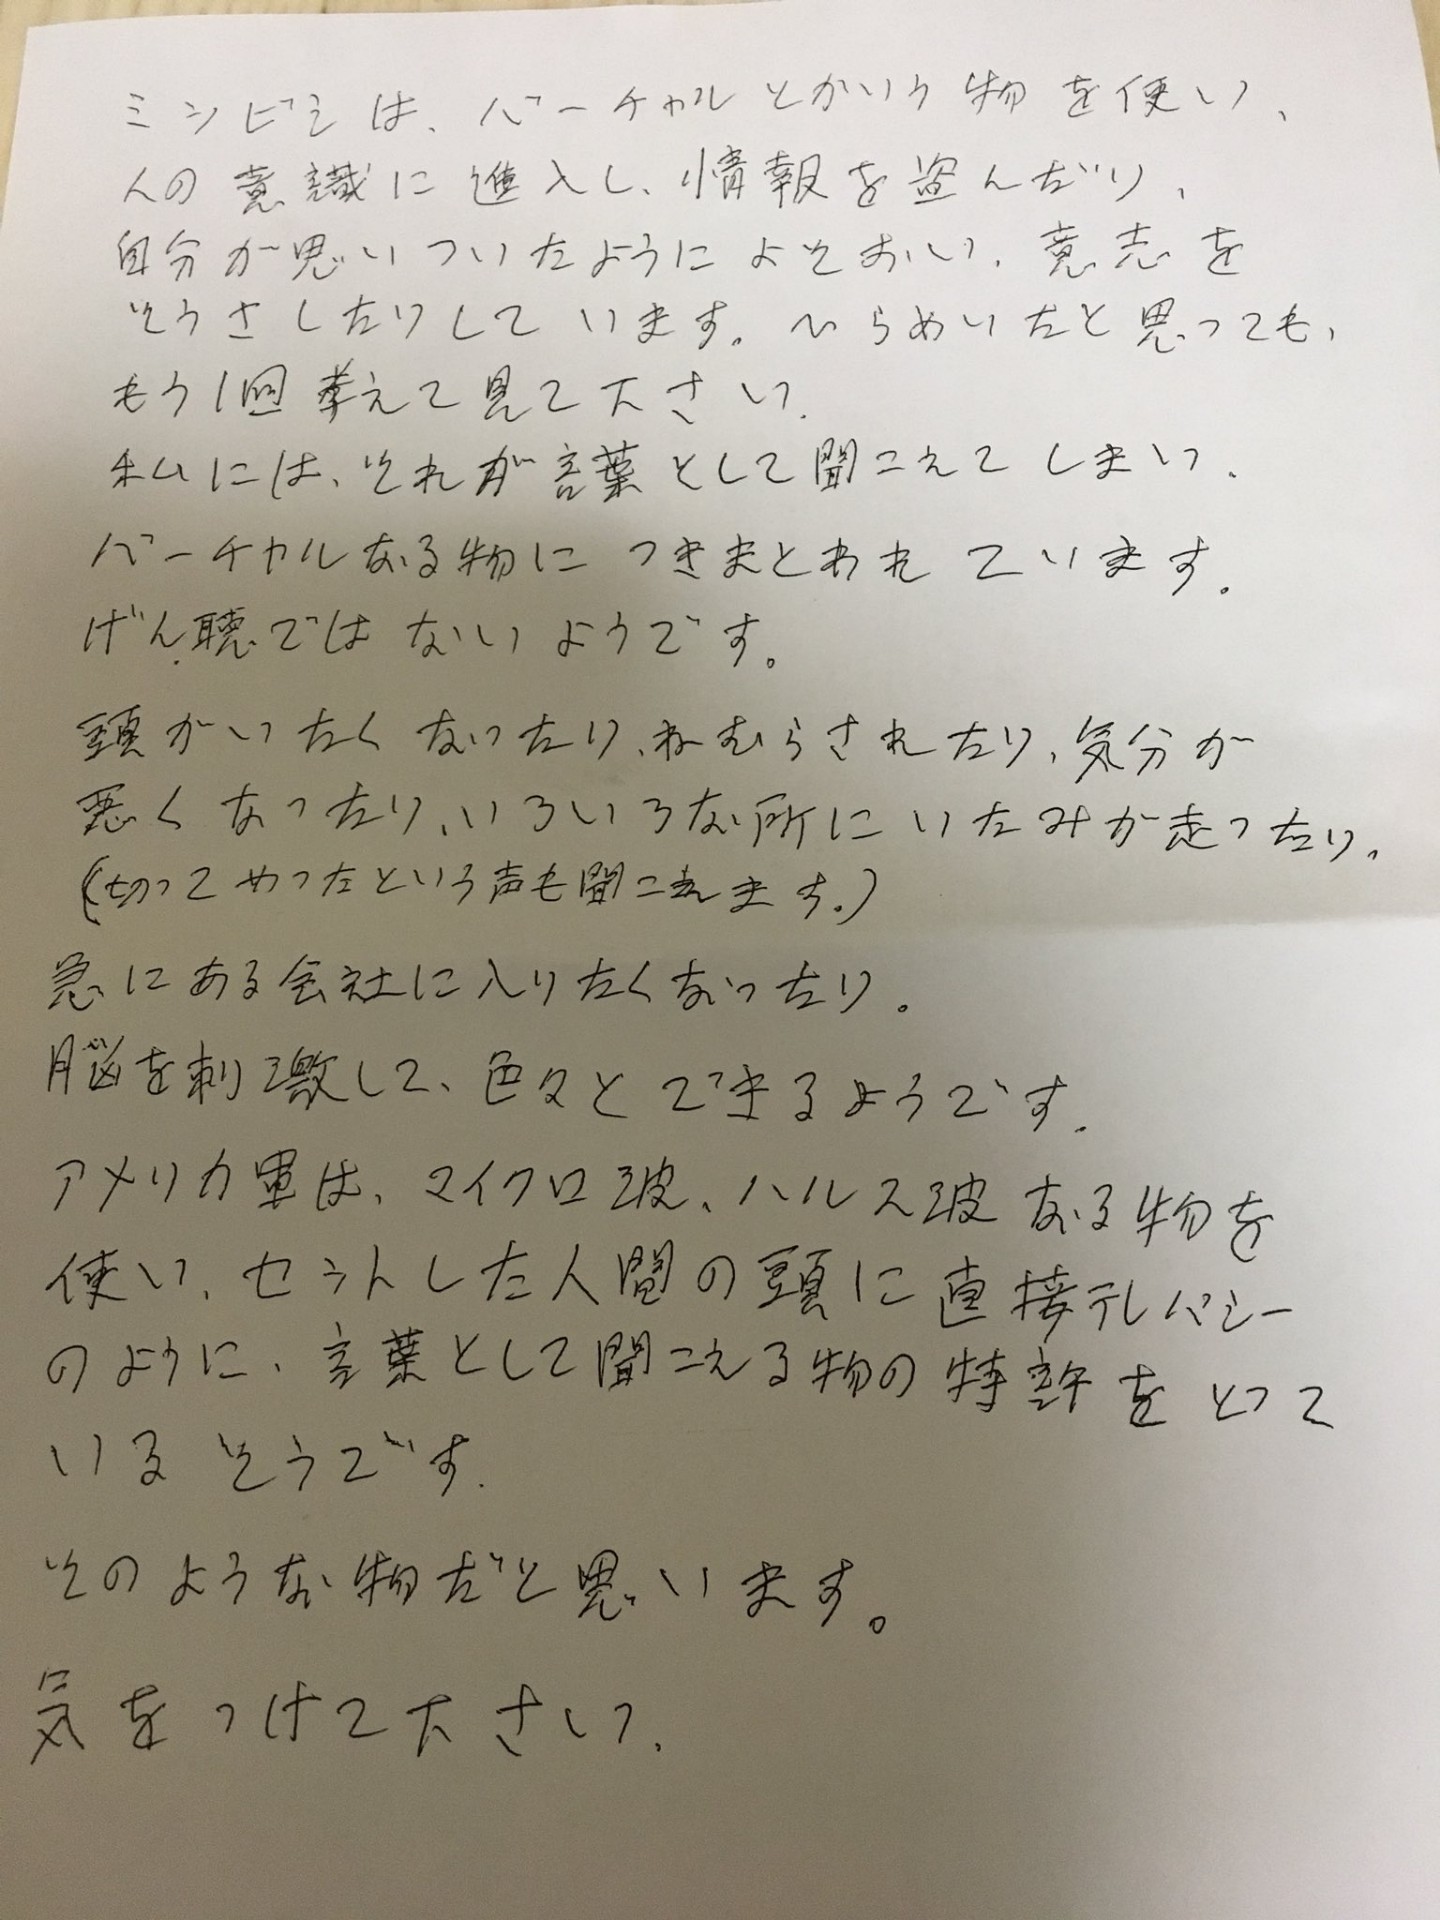 ミンビシは、バーチャルとかいう物を使い、
人の意識に進入し、情報を盗んだり、
自分が思いついたようによそおい、意志を
そうさしたりしています。ひらめいたと思っても、
もう1回考えて見て下さい。
私には、それが言葉として聞こえてしまい、
バーチャルなる物につきまとわれています。
げん聴ではないようです。
頭がいたくなったり、ねむらされたり、気分が
悪くなったり、いろいろな所にいたみが走ったり、
(切ってやったという声も聞こえます。)
急にある会社に入りたくなったり。
脳を刺激して、色々とできるようです。
アメリカ軍は、マイクロ波、ハルス波なる物を
使い、セットした人間の頭に直接テレパシー
のように、言葉として聞こえる物の特許をとって
いるそうです。
そのような物だと思います。
気をつけて下さい。